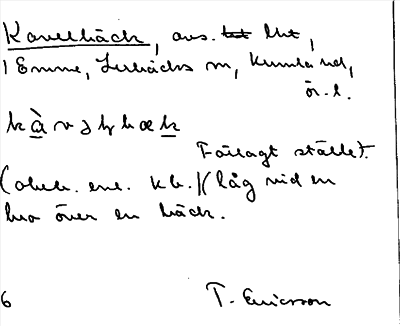 Kavelbäck, avs. t̶e̶t̶ lht,
i Emme, Lerbäcks sn, Kumla hd,
ör. l.
kàvəlbæk
Förlagt ställe?.
(obek. enl. kb.) (låg vid en
bro över en bäck.
6 T. Ericsson